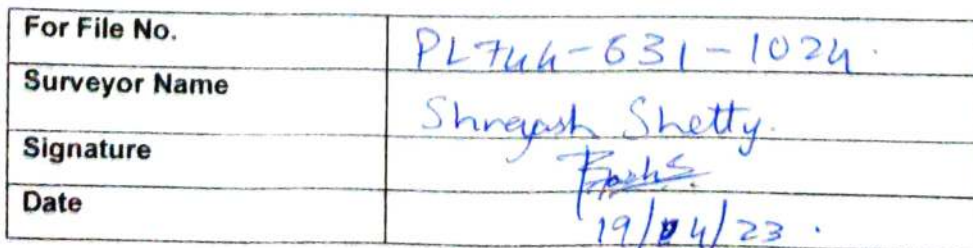 For File No. PL744-631-1024.
Surveyor Name Shreyash Shetty.
Signature
Date 19/04/23.